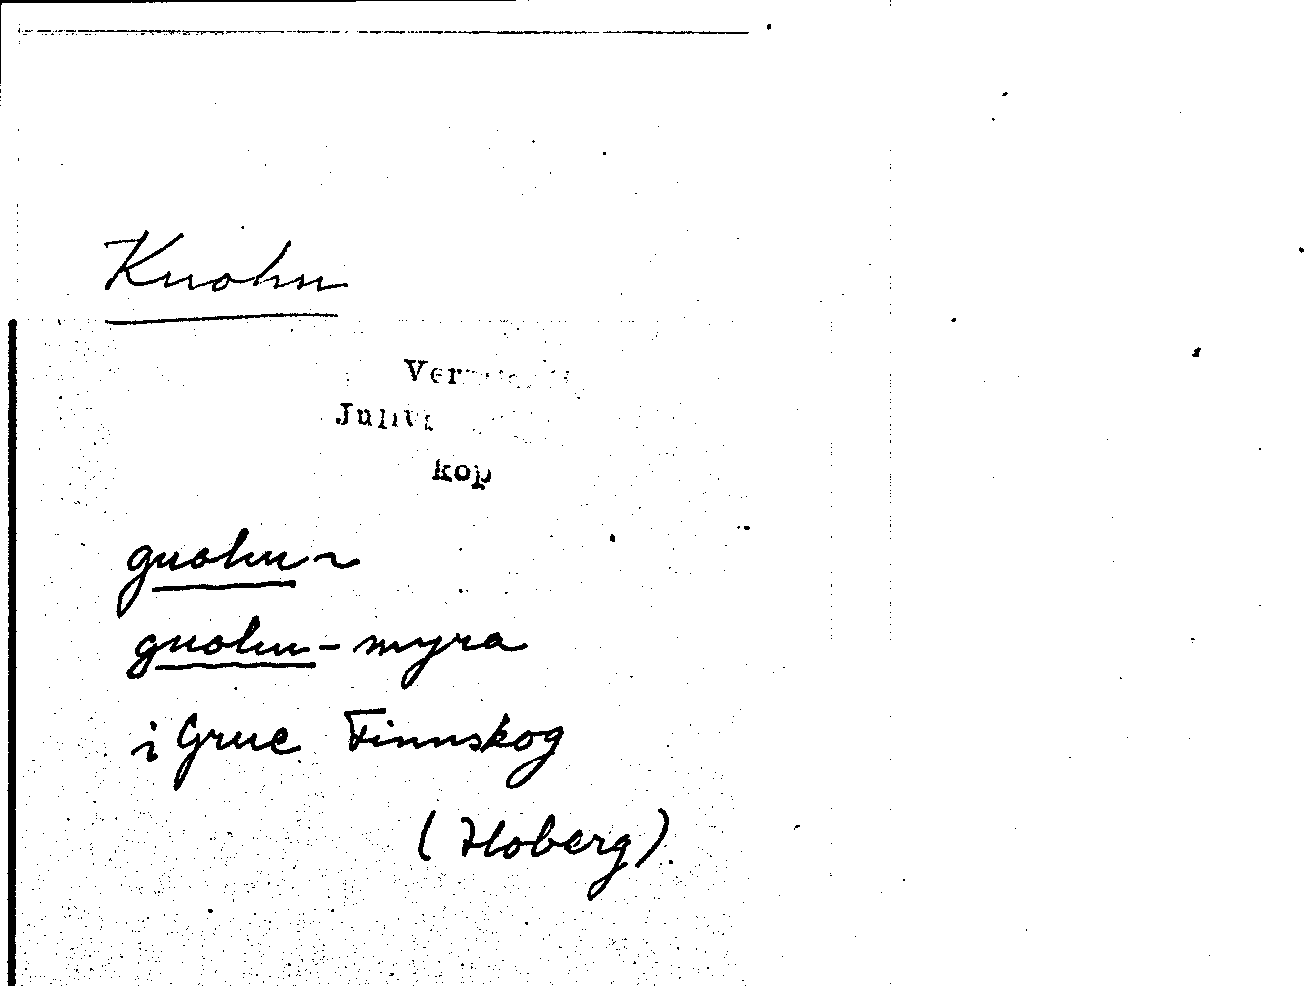 Kuohu
Ver
Juliu
kop
guohu ~
guohu - myra
i Grue Finnskog
(Hoberg).